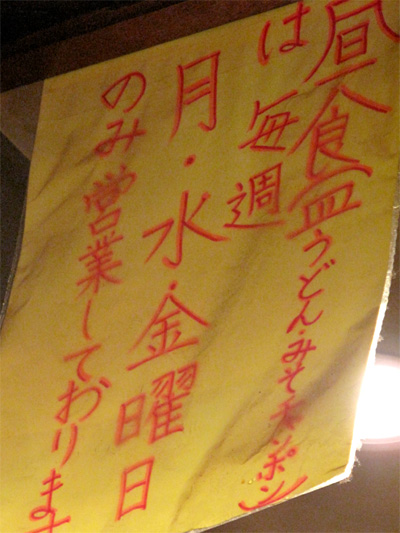 昼食(皿うどん・みそチャンポン)
は毎週
月・水・金曜日
のみ営業しております